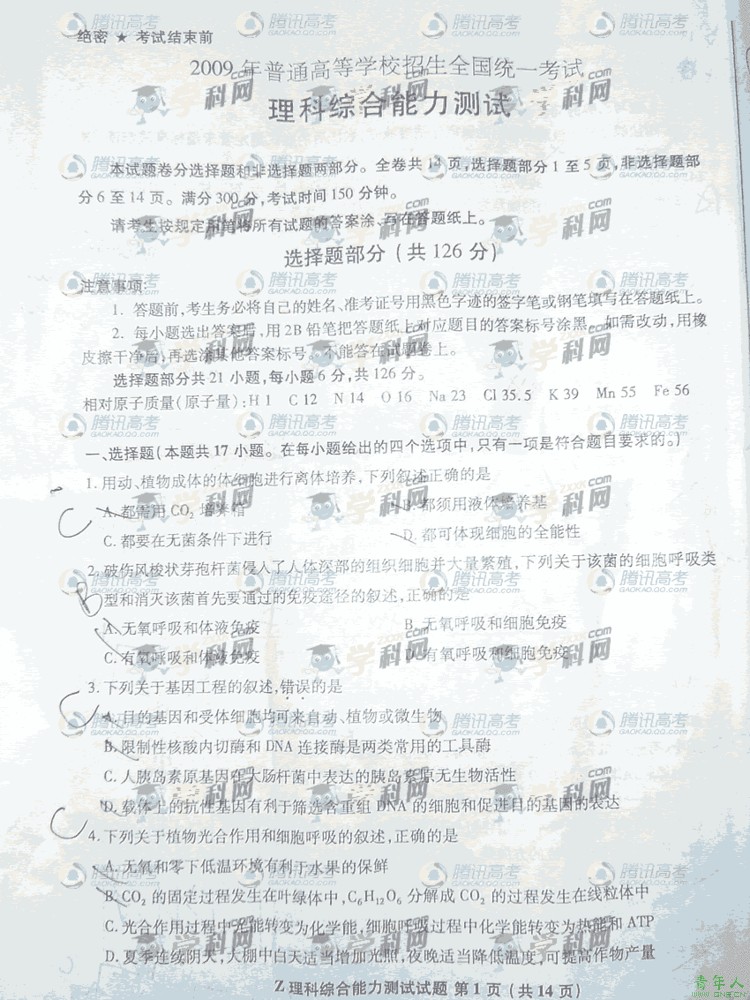 绝密 ★ 考试结束前
2009 年普通高等学校招生全国统一考试
理科综合能力测试
本试题卷分选择题和非选择题两部分。全卷共 14 页,选择题部分 1 至 5 页,非选择题部
分 6 至 14 页。满分 300 分,考试时间 150 分钟。
请考生按规定用笔将所有试题的答案涂、写在答题纸上。
选择题部分(共 126 分)
注意事项:
1. 答题前,考生务必将自己的姓名、准考证号用黑色字迹的签字笔或钢笔填写在答题纸上。
2. 每小题选出答案后,用 2B 铅笔把答题纸上对应题目的答案标号涂黑。如需改动,用橡
皮擦干净后,再选涂其他答案标号。不能答在试题卷上。
选择题部分共 21 小题,每小题 6 分,共 126 分。
相对原子质量(原子量):H 1 C 12 N 14 O 16 Na 23 Cl 35.5 K 39 Mn 55 Fe 56
一、选择题(本题共 17 小题。在每小题给出的四个选项中,只有一项是符合题目要求的。)
1. 用动、植物成体的体细胞进行离体培养,下列叙述正确的是
C
A. 都需用 CO₂ 培养箱 B. 都须用液体培养基
C. 都要在无菌条件下进行 D. 都可体现细胞的全能性
2. 破伤风梭状芽孢杆菌侵入了人体深部的组织细胞并大量繁殖,下列关于该菌的细胞呼吸类
B
型和消灭该菌首先要通过的免疫途径的叙述,正确的是
A. 无氧呼吸和体液免疫 B. 无氧呼吸和细胞免疫
C. 有氧呼吸和体液免疫 D. 有氧呼吸和细胞免疫
C
3. 下列关于基因工程的叙述,错误的是
A. 目的基因和受体细胞均可来自动、植物或微生物
B. 限制性核酸内切酶和 DNA 连接酶是两类常用的工具酶
C. 人胰岛素原基因在大肠杆菌中表达的胰岛素原无生物活性
D. 载体上的抗性基因有利于筛选含重组 DNA 的细胞和促进目的基因的表达
C
4. 下列关于植物光合作用和细胞呼吸的叙述,正确的是
A. 无氧和零下低温环境有利于水果的保鲜
B. CO₂ 的固定过程发生在叶绿体中,C₆H₁₂O₆ 分解成 CO₂ 的过程发生在线粒体中
C. 光合作用过程中光能转变为化学能,细胞呼吸过程中化学能转变为热能和 ATP
D. 夏季连续阴天,大棚中白天适当增加光照,夜晚适当降低温度,可提高作物产量
Z 理科综合能力测试试题 第 1 页(共 14 页)
腾讯高考
GAOKAO.QQ.COM
学科网
ZXXK.com
青年人